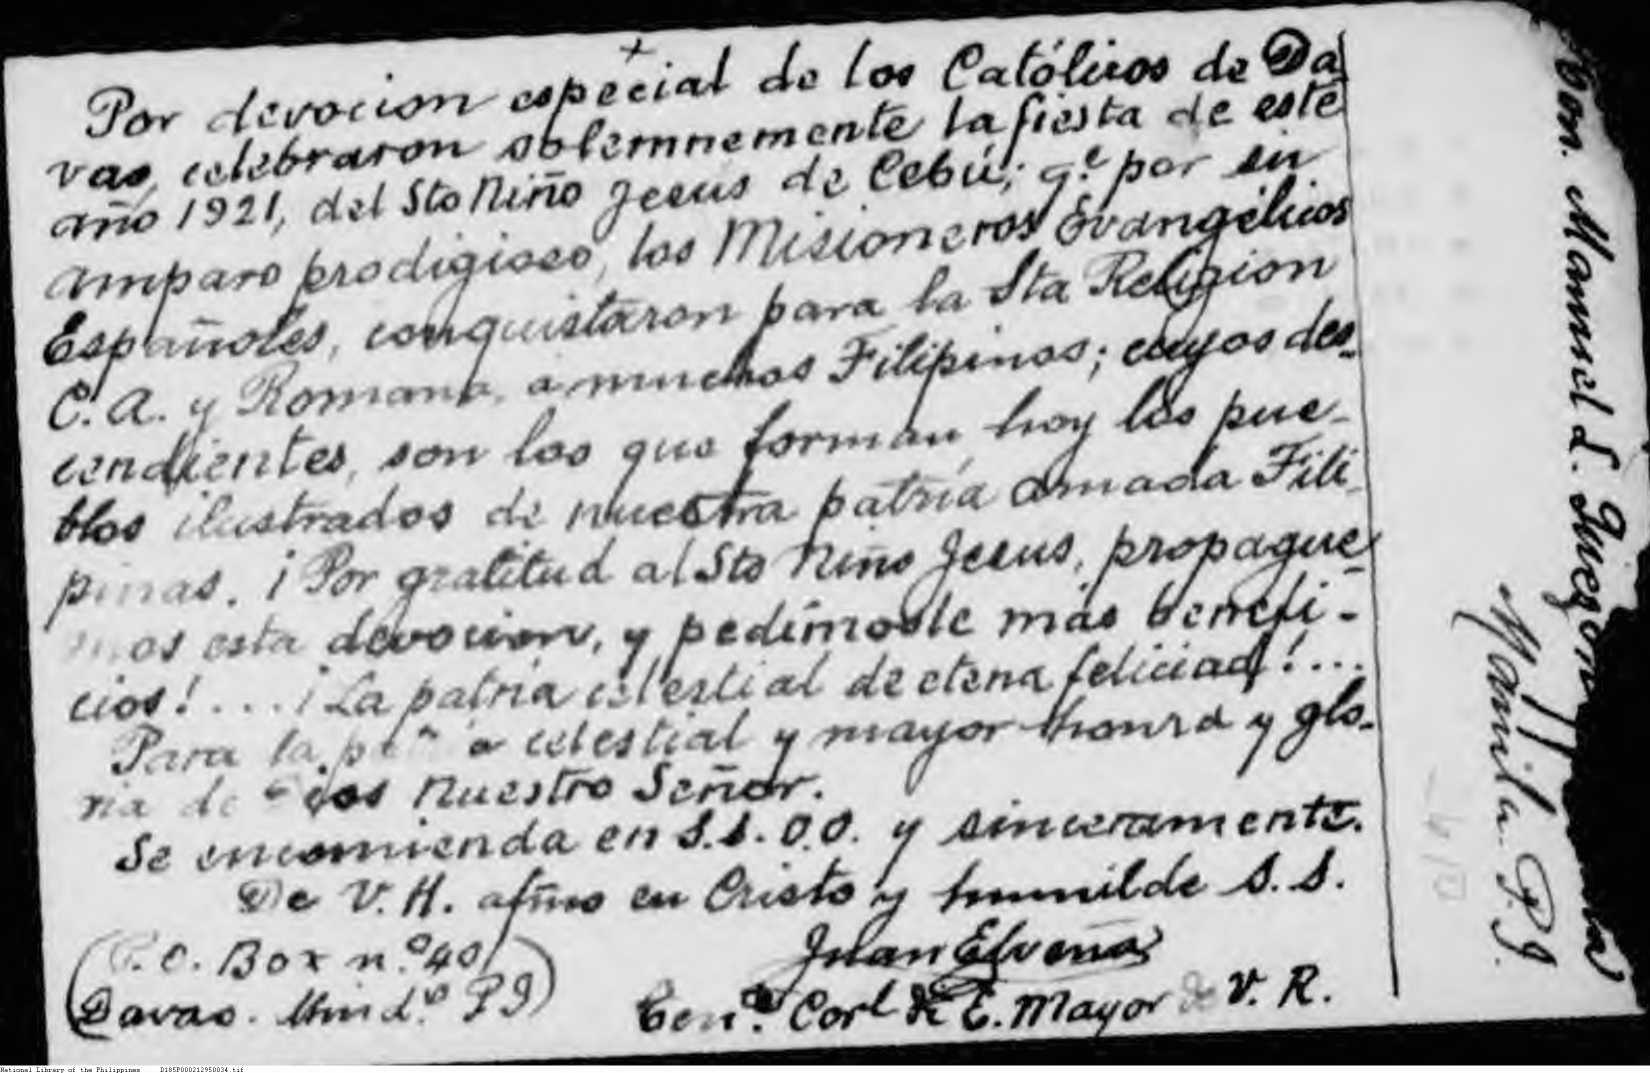 +
Por devocion especial de los Católicos de Da
vao, celebraron solemnemente la fiesta de este
año 1921, del Sto Niño Jesus de Cebú; q.e por su
amparo prodigioso, los Misioneros Evangélicos
Españoles, conquistaron para la Sta Religion
C. A. y Romana, a muchos Filipinos; cuyos des-
cendientes, son los que forman hoy los pue-
blos ilustrados de nuestra patria amada Fili-
pinas. ¡Por gratitud al Sto Niño Jesus, propague-
mos esta devocion, y pedímosle más benefi-
cios!.... ¡La patria celestial de eterna feliciad!...
Para la patria celestial y mayor honra y glo-
ria de Dios Nuestro Señor.
Se encomienda en S.S. O.O. y sinceramente.
De V. H. afmo en Cristo y humilde S. S.
Juan
Gen.l Corl de E. Mayor de V. R.
(P.O. Box n.º 40
Davao. Mind.º P I)
Hon. Manuel L. Quezon
Manila P.I.
National Library of the Philippines D185P000212950034.tif